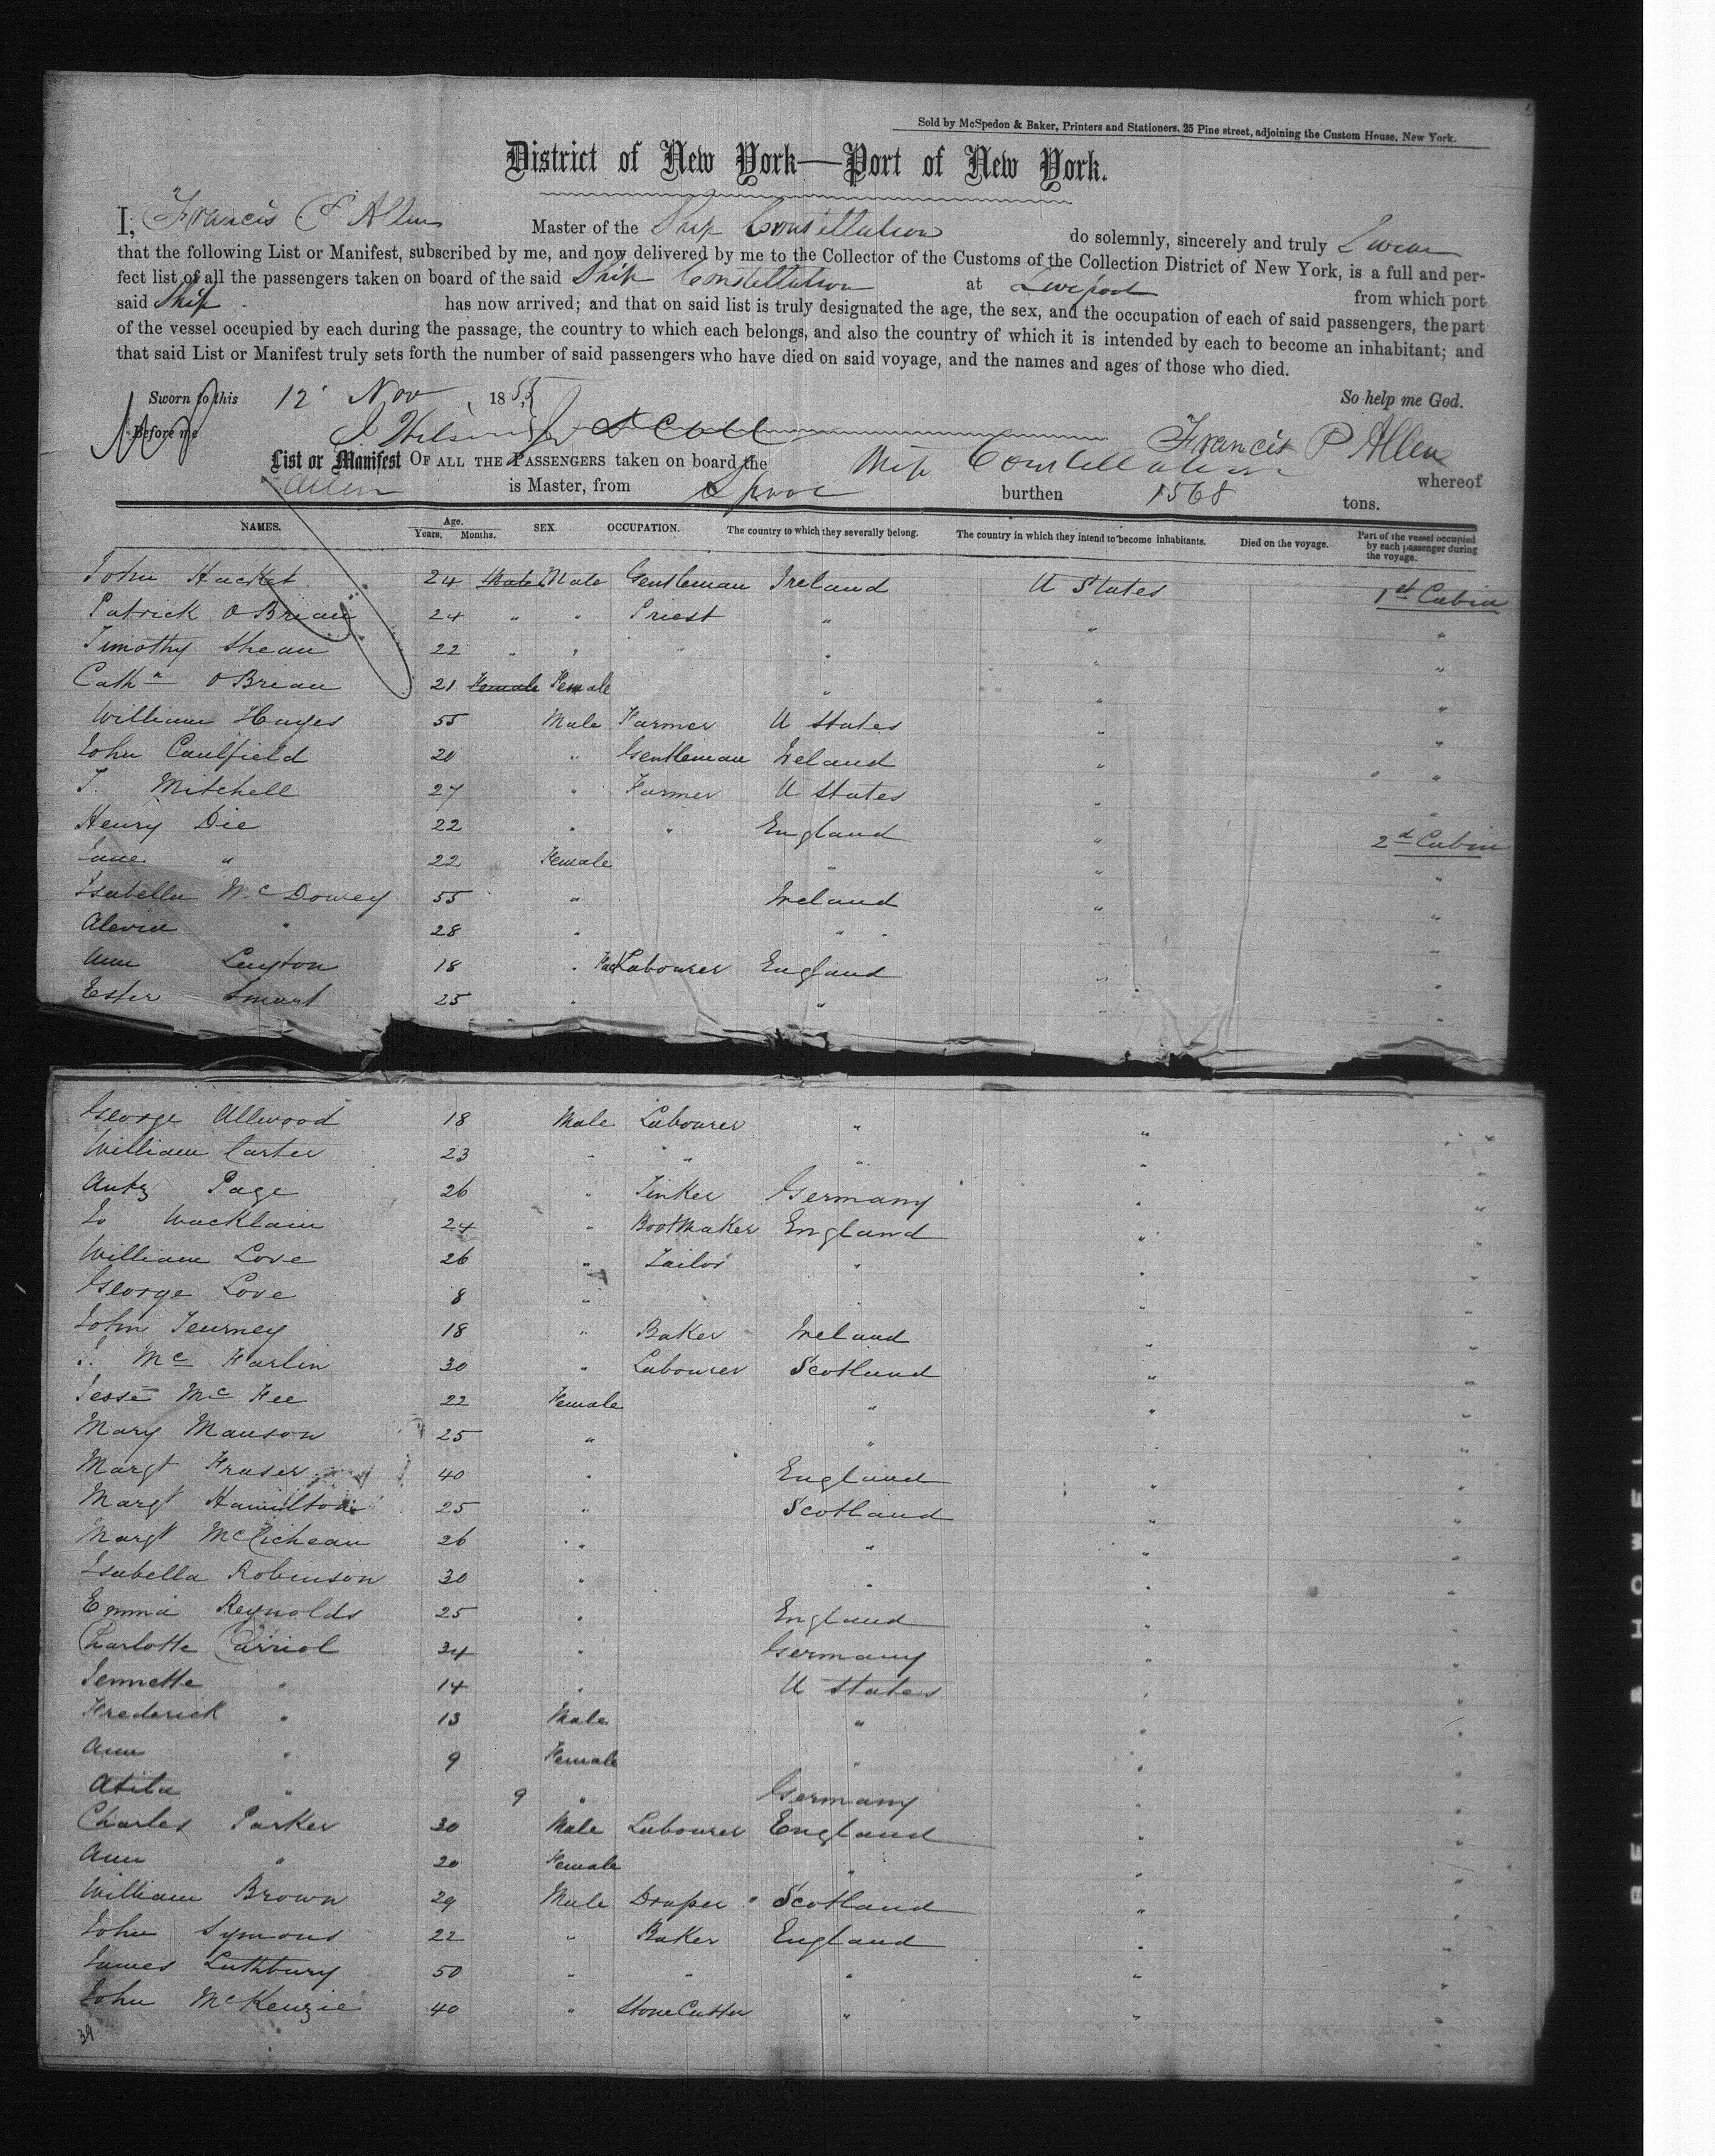 Sold by McSpedon & Baker, Printers and Stationers, 25 Pine street, adjoining the Custom House, New York.
District of New York—Port of New York.
I, Francis P Allen Master of the Ship Constellation do solemnly, sincerely and truly Swear
that the following List or Manifest, subscribed by me, and now delivered by me to the Collector of the Customs of the Collection District of New York, is a full and per-
fect list of all the passengers taken on board of the said Ship Constellation at Liverpool from which port
said Ship has now arrived; and that on said list is truly designated the age, the sex, and the occupation of each of said passengers, the part
of the vessel occupied by each during the passage, the country to which each belongs, and also the country of which it is intended by each to become an inhabitant; and
that said List or Manifest truly sets forth the number of said passengers who have died on said voyage, and the names and ages of those who died.
Sworn to this 12 Nov 1855 So help me God.
Before me Francis P Allen
List or Manifest OF ALL THE PASSENGERS taken on board the Ship Constellation whereof
Allen is Master, from Lpool burthen 1568 tons.
NAMES. Age. Years. Months. SEX. OCCUPATION. The country to which they severally belong. The country in which they intend to become inhabitants. Died on the voyage. Part of the vessel occupied by each passenger during the voyage.
John Hacket 24 Male Male Gentleman Ireland U States 1st Cabin
Patrick O Brian 24 " " Priest " " "
Timothy Shean 22 " " " " " "
Catha O Brian 21 Female Female " " "
William Hayes 55 Male Farmer U States " "
John Caulfield 20 " Gentleman Ireland " "
T. Mitchell 27 " Farmer U States " "
Henry Die 22 " " England " 2d Cabin
Jane " 22 Female " " "
Isabella McDowey 55 " Ireland " "
" 28 " " " "
Ann Leyton 18 " Labourer England " "
Ester Smart 25 " " " "
George Allwood 18 Male Labourer " " "
William Carter 23 " " " " "
Page 26 " Tinker Germany " "
Jo Wacklain 24 " BootMaker England " "
William Love 26 " Tailor " " "
George Love 8 " " " "
John Teurney 18 " Baker Ireland " "
J. Mc Farlin 30 " Labourer Scotland " "
Jesse Mc Fee 22 Female " " "
Mary Manson 25 " " " "
Margt Fraser 40 " England " "
Margt Hamilton 25 " Scotland " "
Margt 26 " " " "
Isabella Robinson 30 " " " "
Emma Reynolds 25 " England " "
Charlotte Carriol 34 " Germany " "
Jennette " 14 " U States " "
Frederick " 13 Male " " "
Ann " 9 Female " " "
Atila " 9 " Germany " "
Charles Parker 30 Male Labourer England " "
Ann " 20 Female " " "
William Brown 29 Male Draper Scotland " "
John Symons 22 " Baker England " "
James Luthbury 50 " " " " "
John McKenzie 40 " Stone Cutter " " "
39
BELL & HOWELL